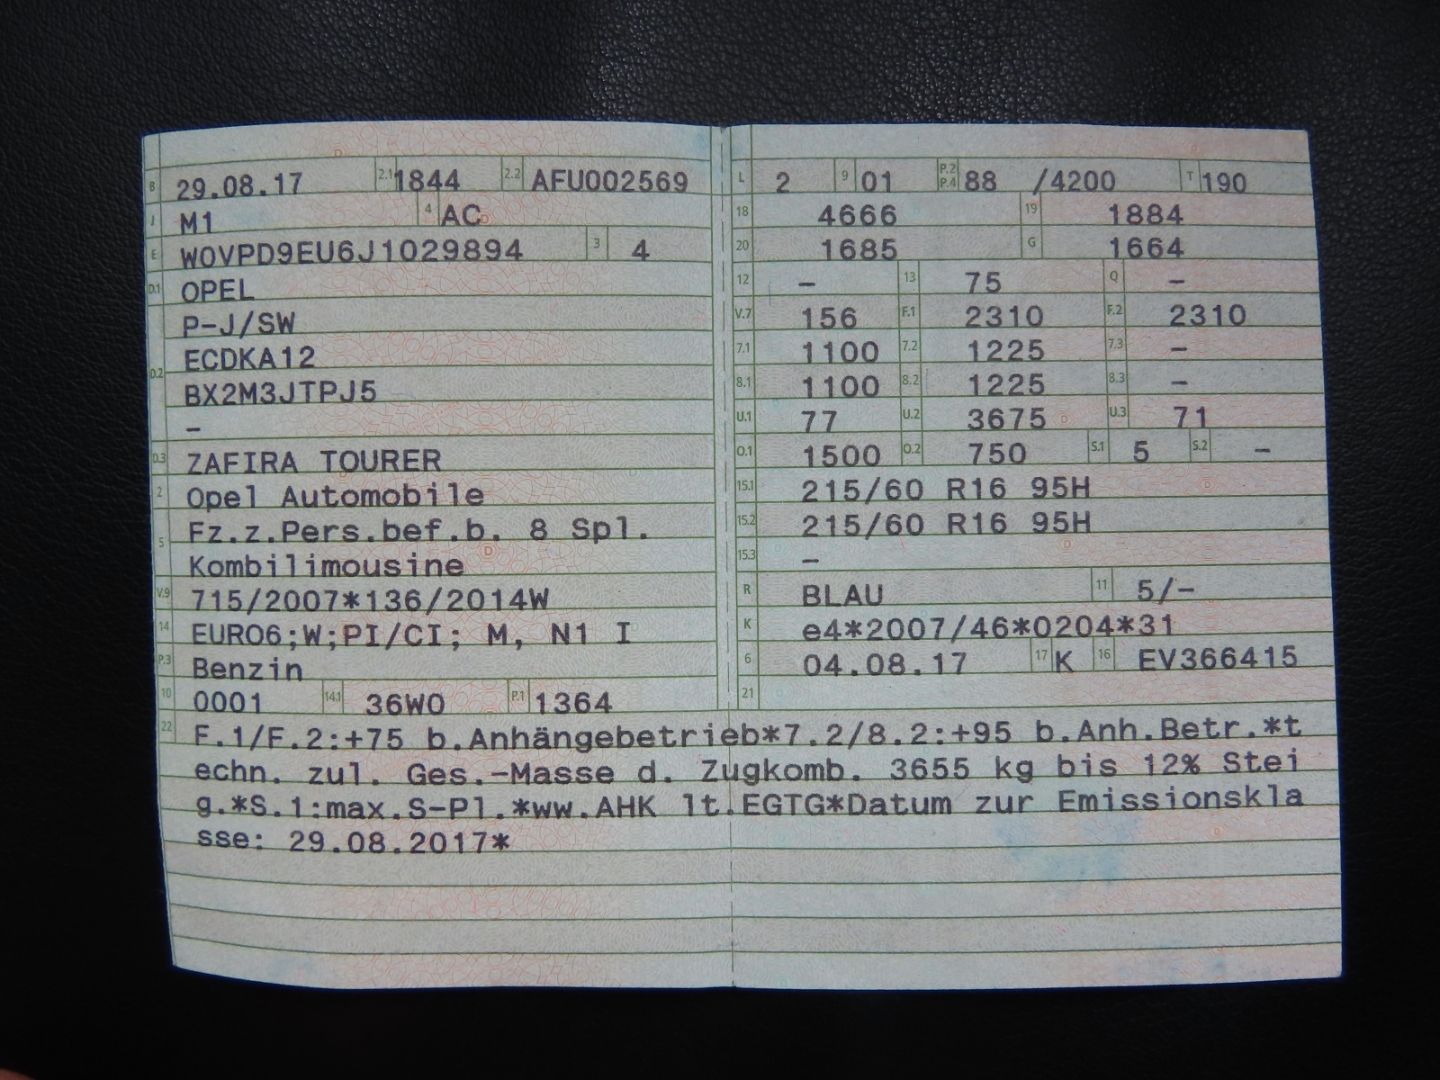 B 29.08.17 2.1 1844 2.2 AFU002569
J M1 4 AC
E W0VPD9EU6J1029894 3 4
D.1 OPEL
P-J/SW
D.2 ECDKA12
BX2M3JTPJ5
–
D.3 ZAFIRA TOURER
2 Opel Automobile
5 Fz.z.Pers.bef.b. 8 Spl.
Kombilimousine
V.9 715/2007*136/2014W
14 EURO6;W;PI/CI; M, N1 I
P.3 Benzin
10 0001 14.1 36W0 P.1 1364
L 2 9 01 P.2 P.4 88 /4200 T 190
18 4666 19 1884
20 1685 G 1664
12 – 13 75 Q –
V.7 156 F.1 2310 F.2 2310
7.1 1100 7.2 1225 7.3 –
8.1 1100 8.2 1225 8.3 –
U.1 77 U.2 3675 U.3 71
O.1 1500 O.2 750 S.1 5 S.2 –
15.1 215/60 R16 95H
15.2 215/60 R16 95H
15.3 –
R BLAU 11 5/–
K e4*2007/46*0204*31
6 04.08.17 17 K 16 EV366415
21
22 F.1/F.2:+75 b.Anhängebetrieb*7.2/8.2:+95 b.Anh.Betr.*t
echn. zul. Ges.-Masse d. Zugkomb. 3655 kg bis 12% Stei
g.*S.1:max.S-Pl.*ww.AHK lt.EGTG*Datum zur Emissionskla
sse: 29.08.2017*